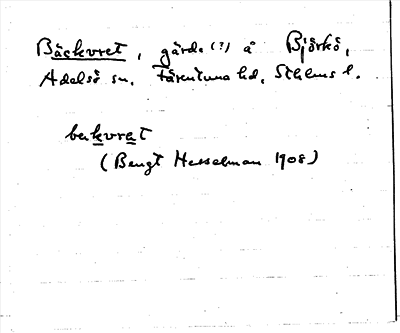 Bäckvret, gärde (?) å Björkö,
Adelsö sn. Färentuna hd, Sthlms l.
bækvret
(Bengt Hesselman 1908)